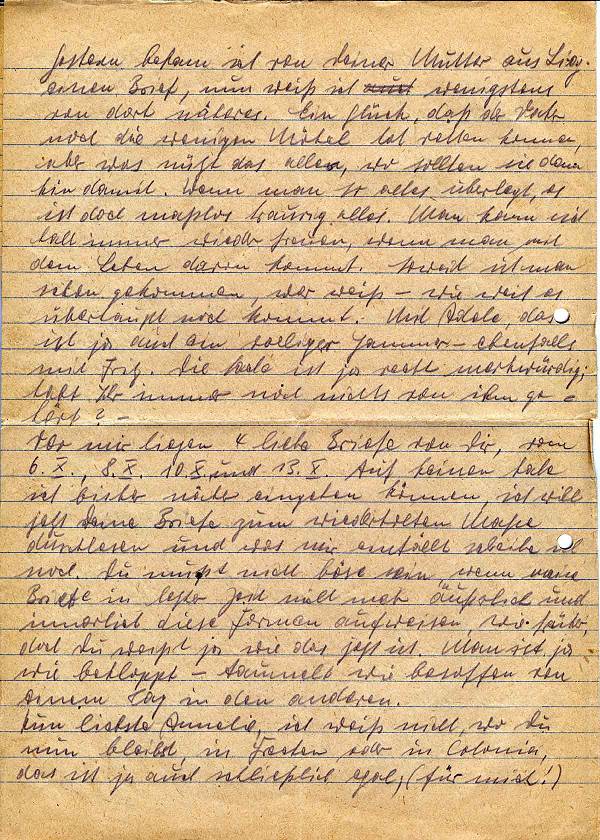 Gestern bekam ich von deiner Mutter aus
einen Brief, nun weiß ich wenigstens
von dort näheres. Ein Glück, daß der Vater
noch die wenigen Möbel hat retten können,
aber was nützt das alles, wo sollten sie denn
hin damit. Wenn man so alles überlegt, es
ist doch maßlos traurig alles. Man kann sich
halt immer wieder freuen, wenn man mit
dem Leben davon kommt. Soweit ist man
schon gekommen, wer weiß – wie weit es
überhaupt noch kommt. Mit Adele, das
ist ja auch ein völliger Jammer – ebenfalls
mit Fritz. Die Sache ist ja recht merkwürdig;
habt Ihr immer noch nichts von ihm ge-
hört? –
Vor mir liegen 4 liebe Briefe von Dir, vom
6. X., 8. X. 10. X. und 13. X. Auf keinen habe
ich bisher näher eingehen können, ich will
jetzt deine Briefe zum wiederholten Male
durchlesen und was mir einfällt schreibe ich
noch. Du mußt nicht böse sein, wenn meine
Briefe in letzter Zeit nicht mehr äußerlich und
innerlich diese Formen aufweisen, wie früher,
doch Du weißt ja wie das jetzt ist. Man ist ja
wie bekloppt – taumelt wie besoffen von
einem Tag in den anderen.
Nun liebste Annelie, ich weiß nicht, wo Du
nun bleibst, in oder in Colonia,
das ist ja auch schließlich egal, (für mich!)